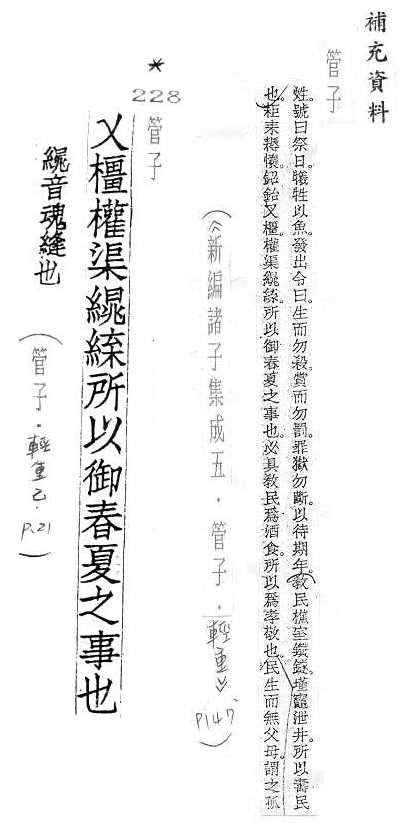 補充資料
管子
姓。號曰祭日。犧牲以魚。發出令曰。生而勿殺。賞而勿罰。罪獄勿斷。以待期年。教民樵室鑽鐩。墐竈泄井。所以壽民
也。耟耒耨懷鉊鈶乂橿權渠繉緤。所以御春夏之事也。必具。教民爲酒食。所以爲孝敬也。民生而無父母。謂之孤
(《新編諸子集成五．管子．輕重》P147)
*
228
管子
乂橿權渠繉緤所以御春夏之事也
繉音魂縫也
(管子．輕重己．P.21)